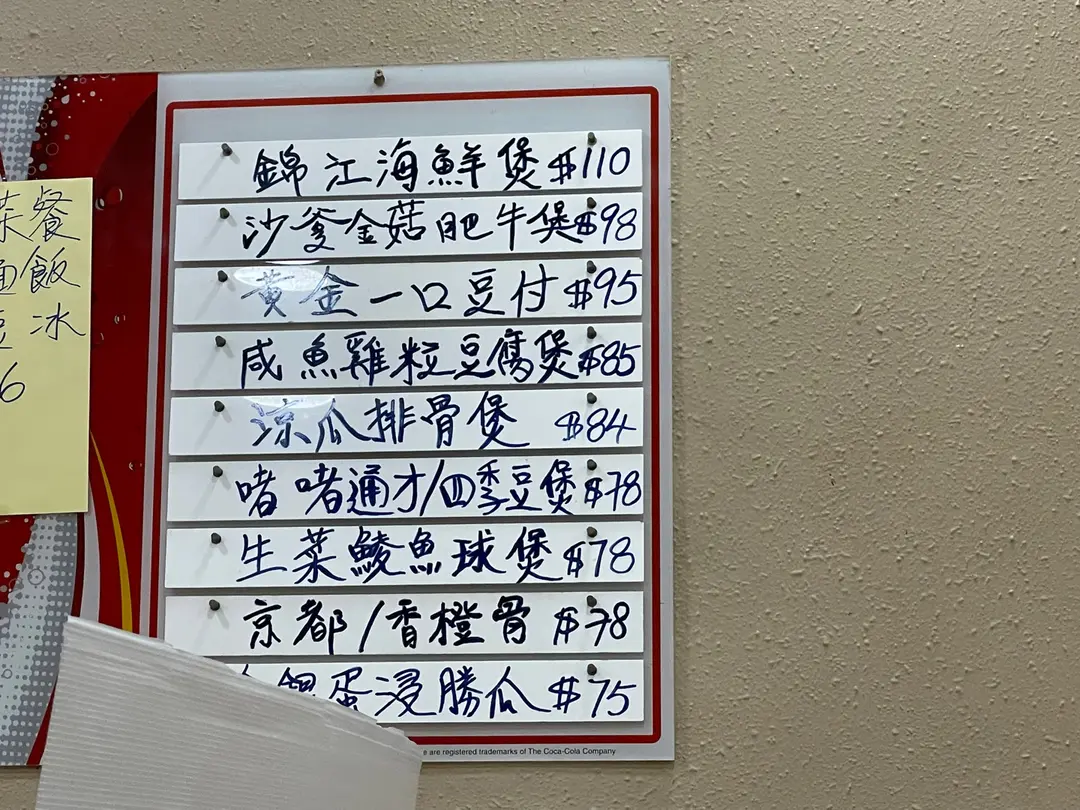 錦江海鮮煲 $110
沙爹金菇肥牛煲 $98
黃金一口豆付 $95
咸魚雞粒豆腐煲 $85
涼瓜排骨煲 $84
啫啫通才/四季豆煲 $78
生菜鯪魚球煲 $78
京都/香橙骨 $78
銀蛋浸勝瓜 $75
餐
飯
冰
6
e are registered trademarks of The Coca-Cola Company